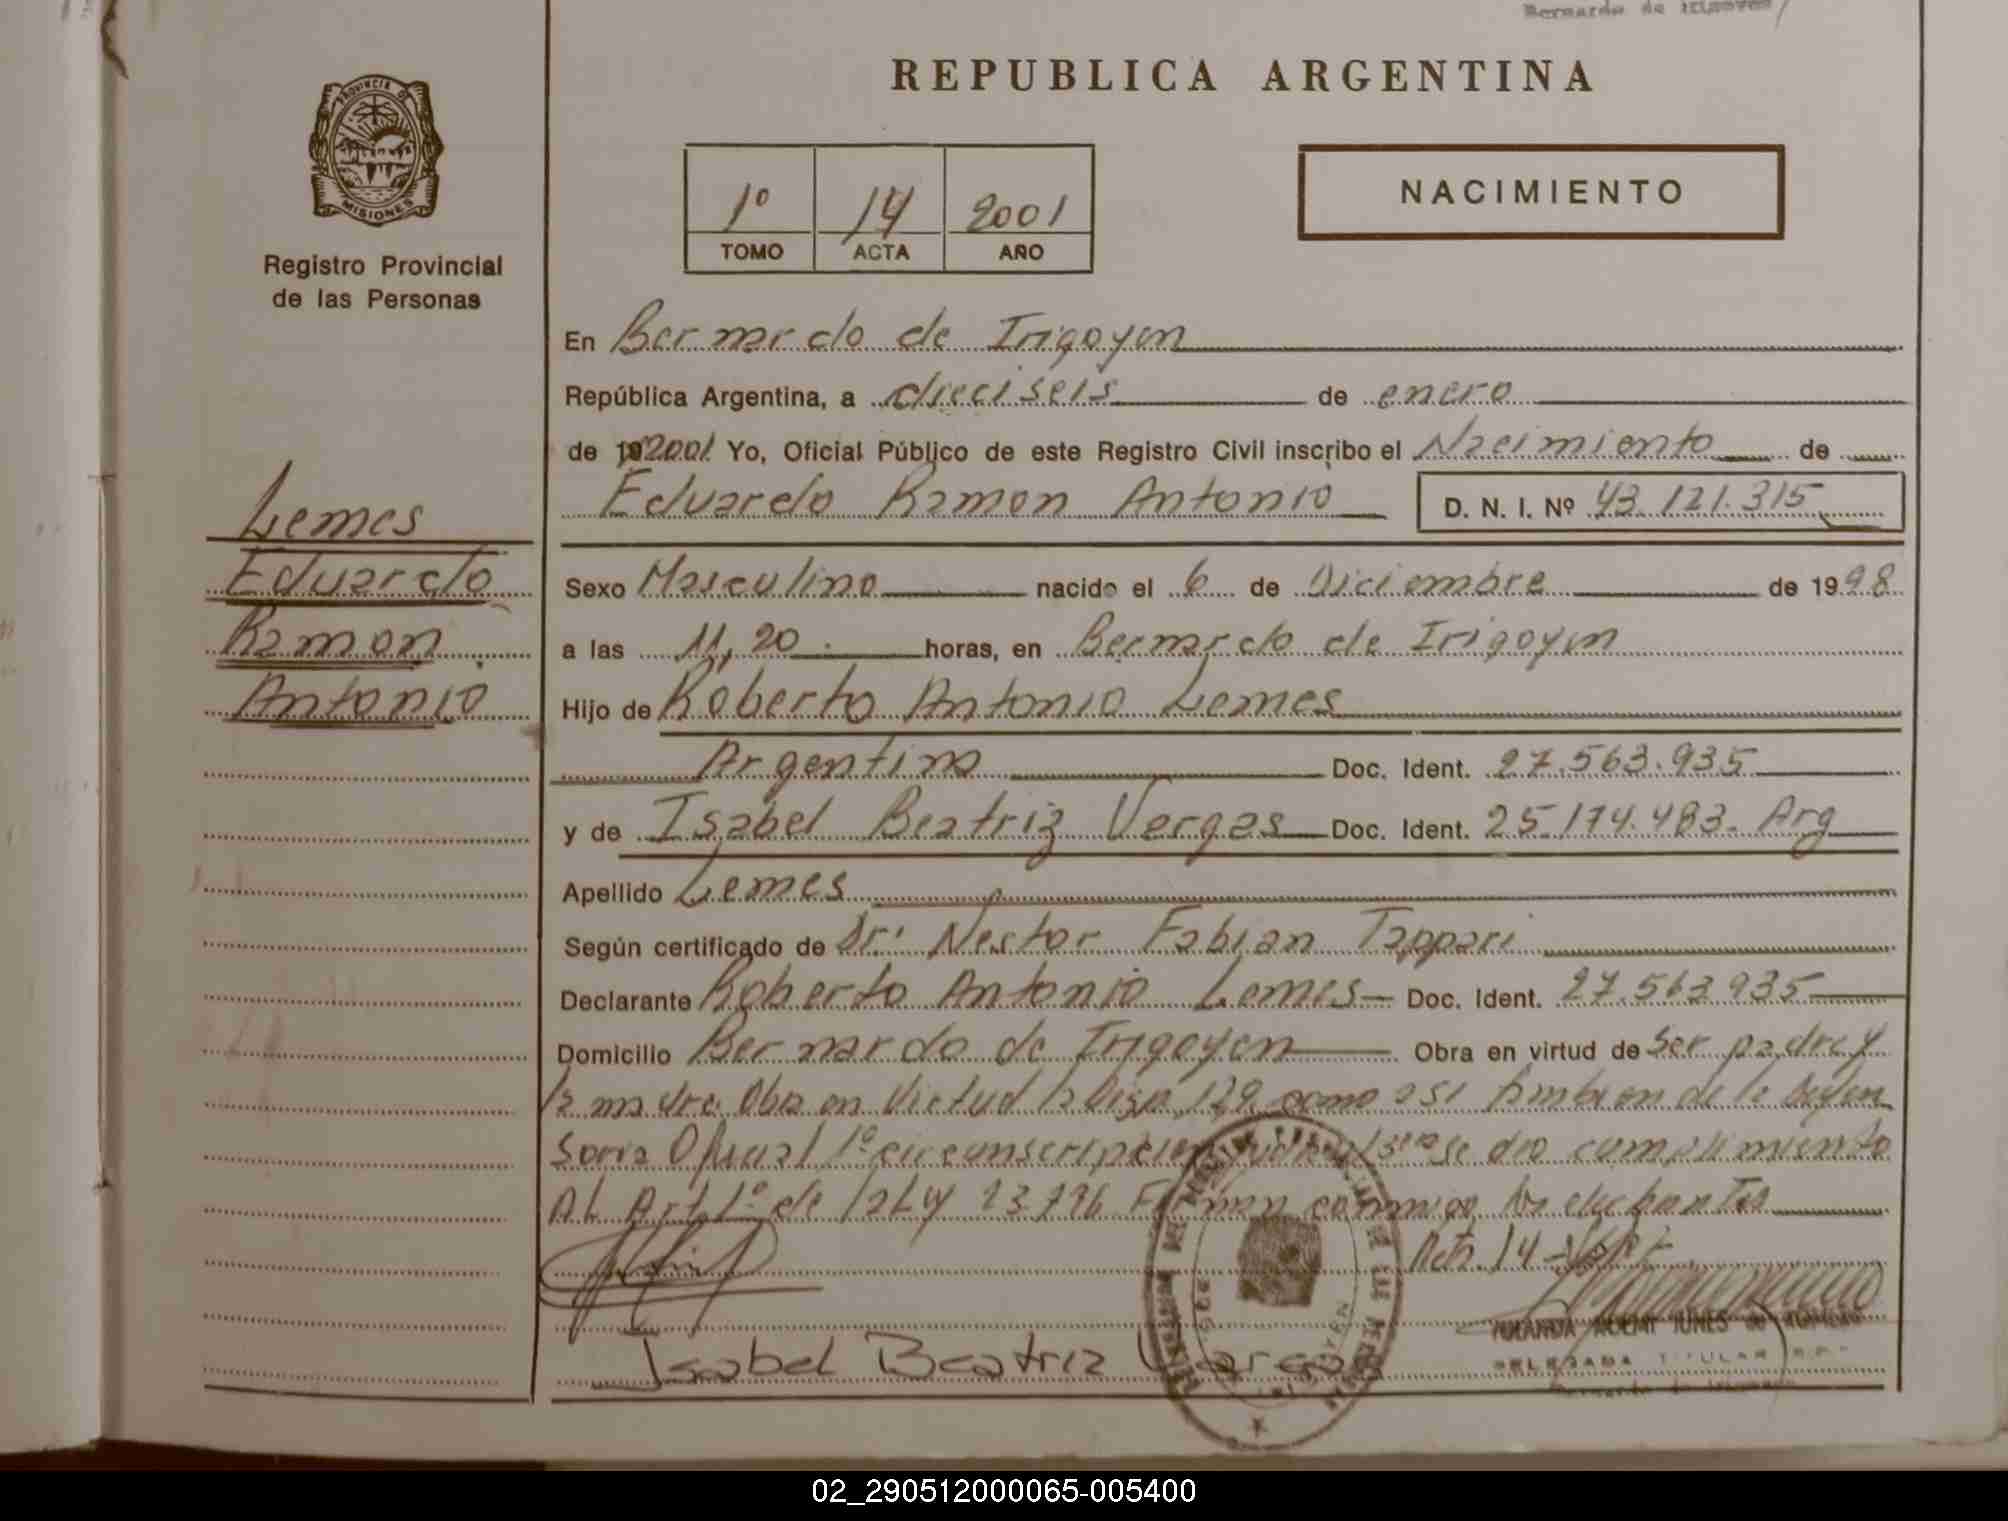 Bernardo de Irigoyen
REPUBLICA ARGENTINA
PROVINCIA DE
MISIONES
Registro Provincial
de las Personas
1º 14 2001
TOMO ACTA AÑO
NACIMIENTO
En Bernardo de Irigoyen
República Argentina, a dieciseis de enero
de 192001 Yo, Oficial Público de este Registro Civil inscribo el Nacimiento de
Eduardo Ramon Antonio D. N. I. Nº 43.121.315
Lemes
Eduardo
Ramon
Antonio
Sexo Masculino nacido el 6 de Diciembre de 1998
a las 11,20 horas, en Bernardo de Irigoyen
Hijo de Roberto Antonio Lemes
Argentino Doc. Ident. 27.563.935
y de Isabel Beatriz Vargas Doc. Ident. 25.174.483. Arg
Apellido Lemes
Según certificado de Dr. Nestor Fabian Tappari
Declarante Roberto Antonio Lemes Doc. Ident. 27.563.935
Domicilio Bernardo de Irigoyen Obra en virtud de ser padre y
la madre. Obra en Virtud la 129 como asi tambien de la Defen
soria Oficial 1º circunscripcion se dio cumplimiento
AL Art 1º de la Ley Firman conmigo los
14
Isabel Beatriz Vargas
YOLANDA NOEMI de
DELEGADA TITULAR
Bernardo de Irigoyen
02_290512000065-005400